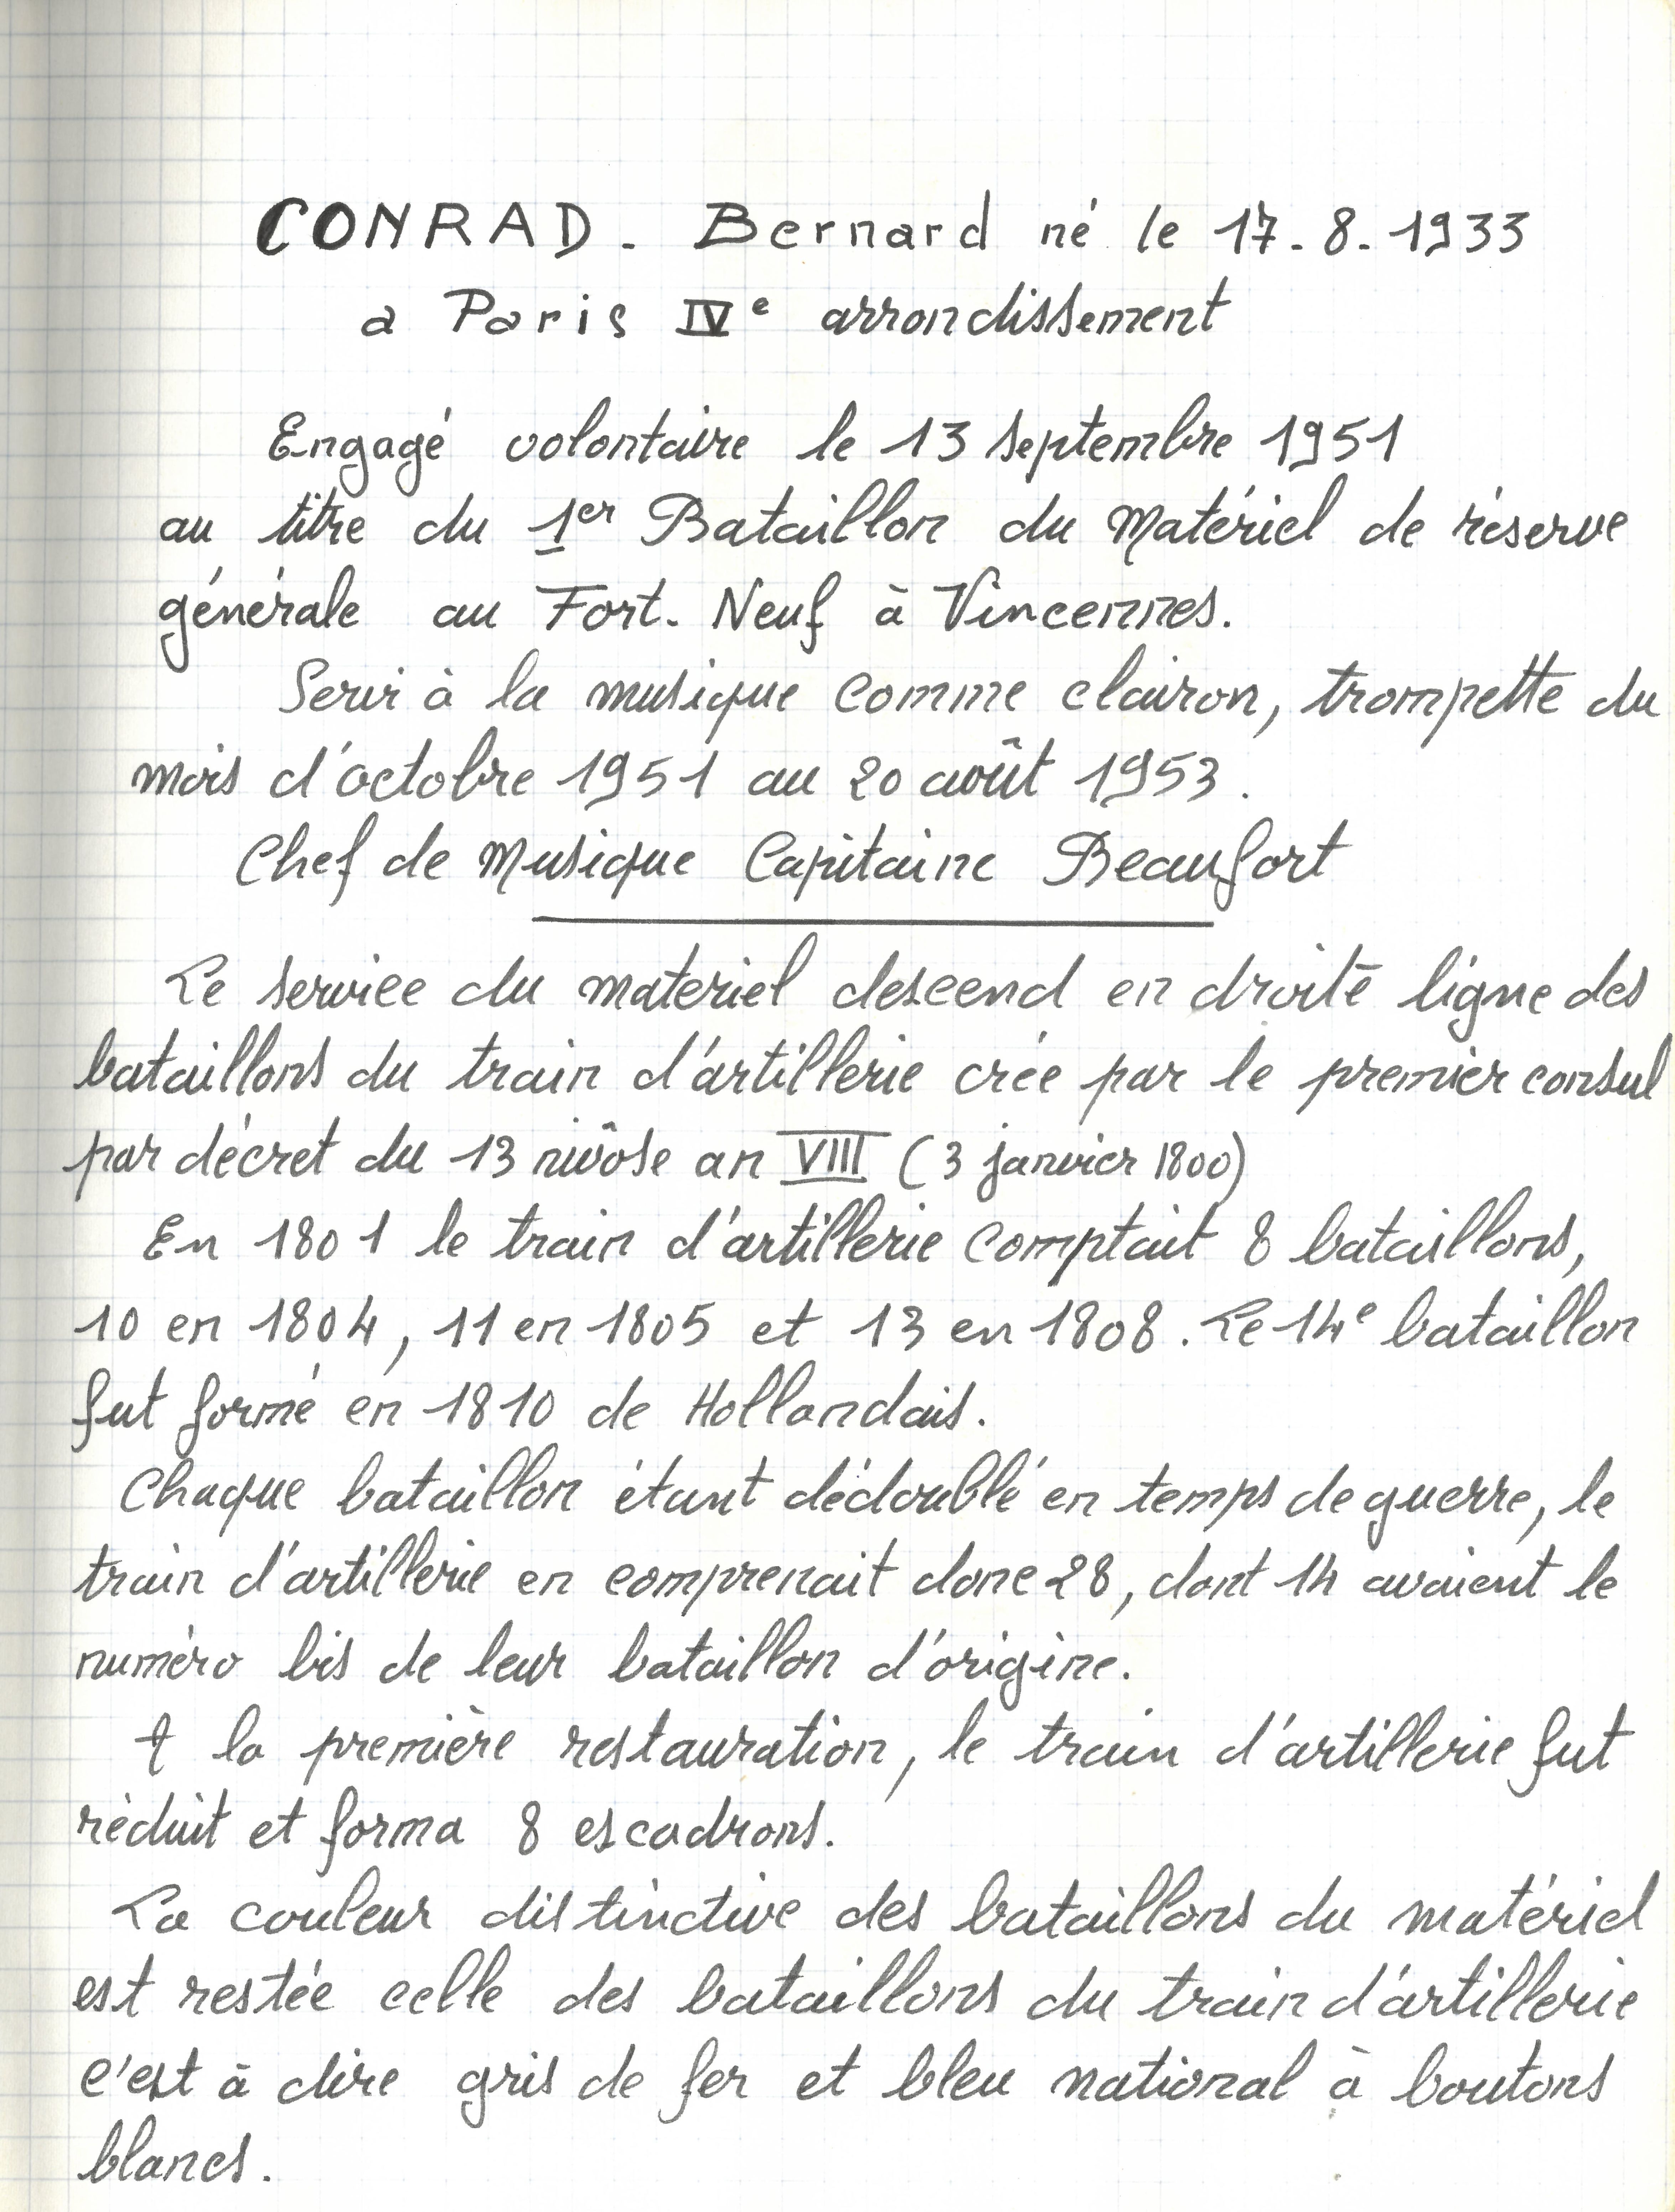 CONRAD. Bernard né le 17.8.1933
a Paris IVe arrondissement
Engagé volontaire le 13 septembre 1951
au titre du 1er Bataillon du Matériel de réserve
générale au Fort. Neuf à Vincennes.
Servi à la musique comme clairon, trompette du
mois d'octobre 1951 au 20 août 1953.
Chef de Musique Capitaine Beaufort
Le service du materiel descend en droite ligne des
bataillons du train d'artillerie crée par le premier consul
par décret du 13 nivôse an VIII (3 janvier 1800)
En 1801 le train d'artillerie comptait 8 bataillons,
10 en 1804, 11 en 1805 et 13 en 1808. Le 14e bataillon
fut formé en 1810 de Hollandais.
Chaque bataillon étant dédoublé en temps de guerre, le
train d'artillerie en comprenait donc 28, dont 14 avaient le
numéro bis de leur bataillon d'origine.
A la première restauration, le train d'artillerie fut
réduit et forma 8 escadrons.
La couleur distinctive des bataillons du matériel
est restée celle des bataillons du train d'artillerie
c'est à dire gris de fer et bleu national à boutons
blancs.